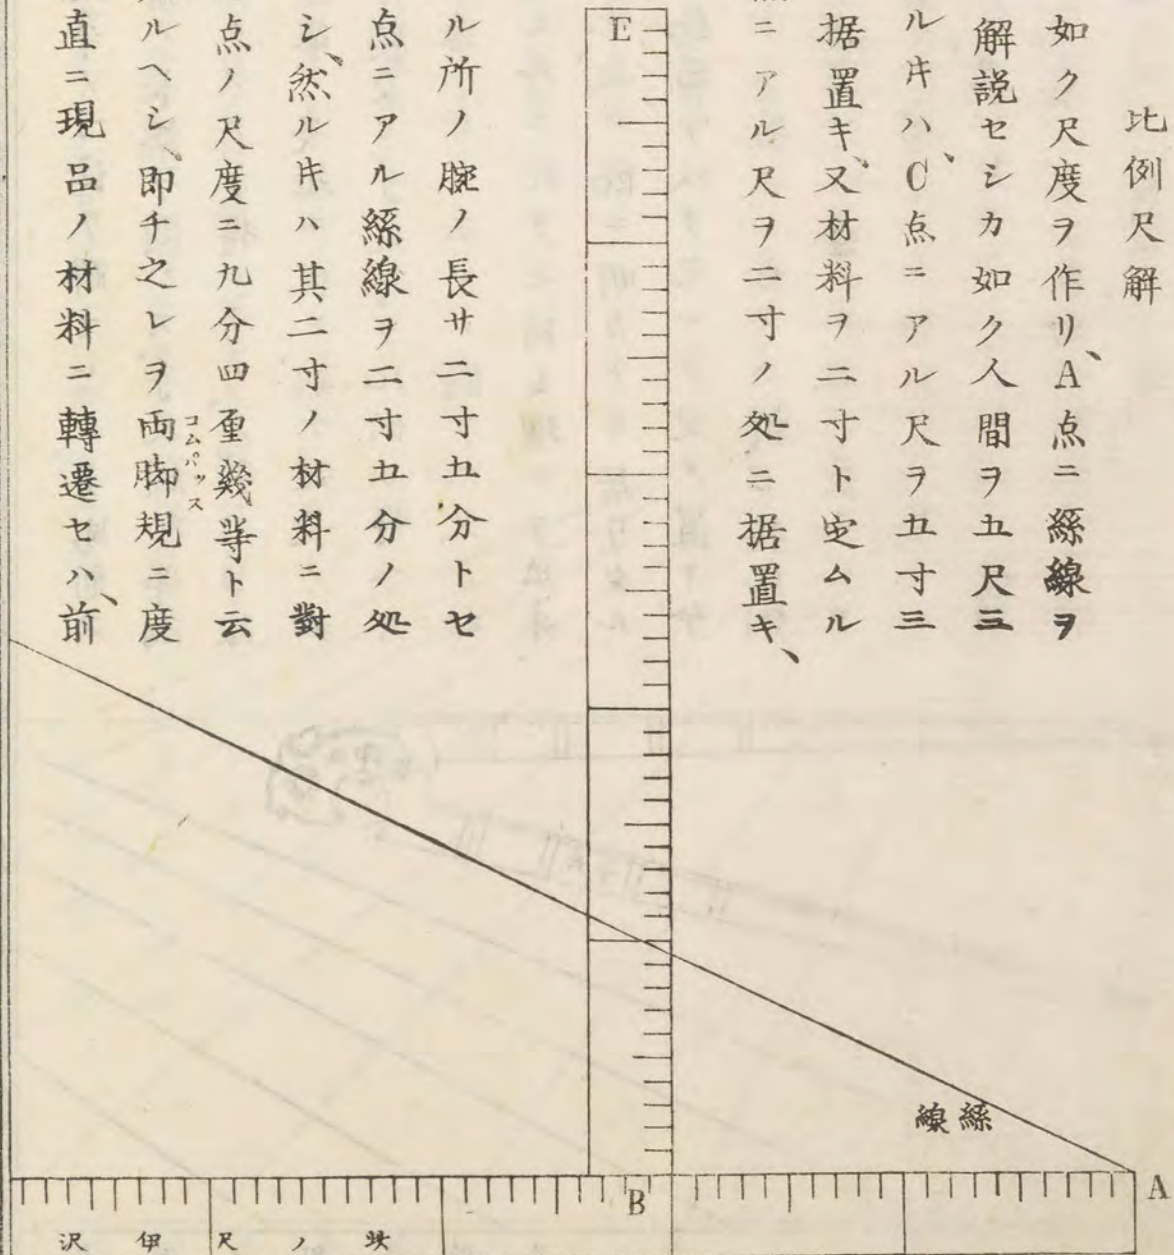 比例尺解
如ク尺度ヲ作リ、A点ニ絲線ヲ
解説セシカ如ク人間ヲ五尺三
ル𪜈ハ、C点ニアル尺ヲ五寸三
据置キ、又材料ヲ二寸ト定ムル
ニアル尺ヲ二寸ノ処ニ据置キ、
ル所ノ腕ノ長サ二寸五分トセ
点ニアル絲線ヲ二寸五分ノ処
シ、然ル𪜈ハ其二寸ノ材料ニ對
点ノ尺度ニ九分四重幾等ト云
ルヘシ、即チ之レヲ両脚規ニ度
コムパッス
直ニ現品ノ材料ニ轉遷セハ、前
E
絲線
B
A
尺ノ
伊
沢